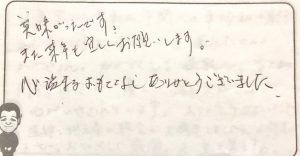 美味しかったです。
また来年も宜しくお願いします。
心温まるおもてなしありがとうございました